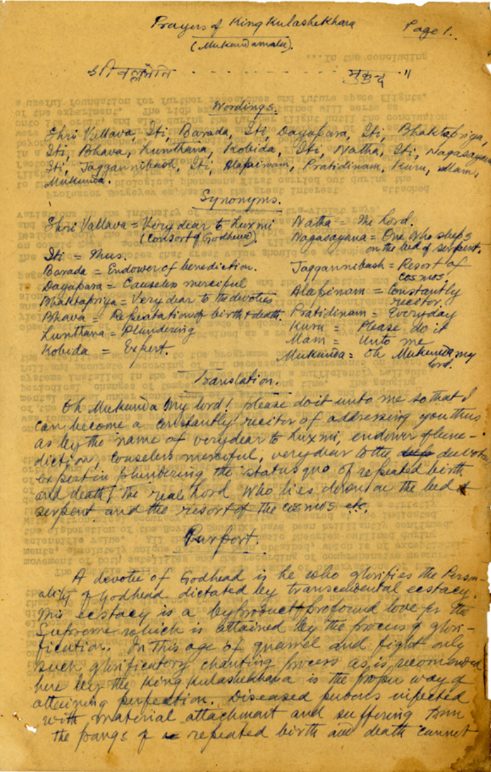 Prayers of King Kulashekhara Page 1.
(Mukundamala).
श्रीवल्लभेति - - - - - - - - - - - मुकुन्द ॥
Wordings.
Shri Vallava, Iti, Barada, Iti, Dayapara, Iti, Bhaktapriya,
Iti, Bhava, Lunthana, Kobida, Iti, Natha, Iti, Nagasayana
Iti, Jagannibash, Iti, Alapinam, Pratidinam, Kuru, Mam,
Mukunda.
Synonyms.
Shri Vallava = Very dear to Luxmi
(consort of Godhead)
Iti = Thus.
Barada = Endower of benediction.
Dayapara = Causeless merciful
Bhaktapriya = Very dear to the devotees
Bhava = Repeatation of birth & death.
Lunthana = Plundering
Kobida = Expert.
Natha = The Lord.
Nagasayana = One who sleeps
on the bed of serpent.
Jagannibash = Resort of
cosmos.
Alapinam = Constantly
recitor.
Pratidinam = Everyday
Kuru = Please do it
Mam = Unto me
Mukunda = Oh Mukunda my
lord.
Translation.
Oh Mukunda my lord! please do it unto me so that I
can become a constantly recitor of addressing you thus
as by the name of very dear to Luxmi, endower of bene-
diction, causeless merciful, very dear to the devotees
expert in plundering the status quo of repeated birth
and death, the real Lord who lies down on the bed of
serpent and the resort of the cosmos etc.
Purport.
A devotee of Godhead is he who glorifies the Person-
ality of Godhead dictated by transcendental ecstacy.
This ecstacy is a byproduct profound love for the
Supreme which is attained by the process of glori-
fication. In this age of quarrel and fight only
such glorificatory chanting process as is recommended
here by the King Kulashekhara is the proper way of
attaining perfection. Diseased persons infected
with material attachment and suffering from
the pangs of repeated birth and death cannot